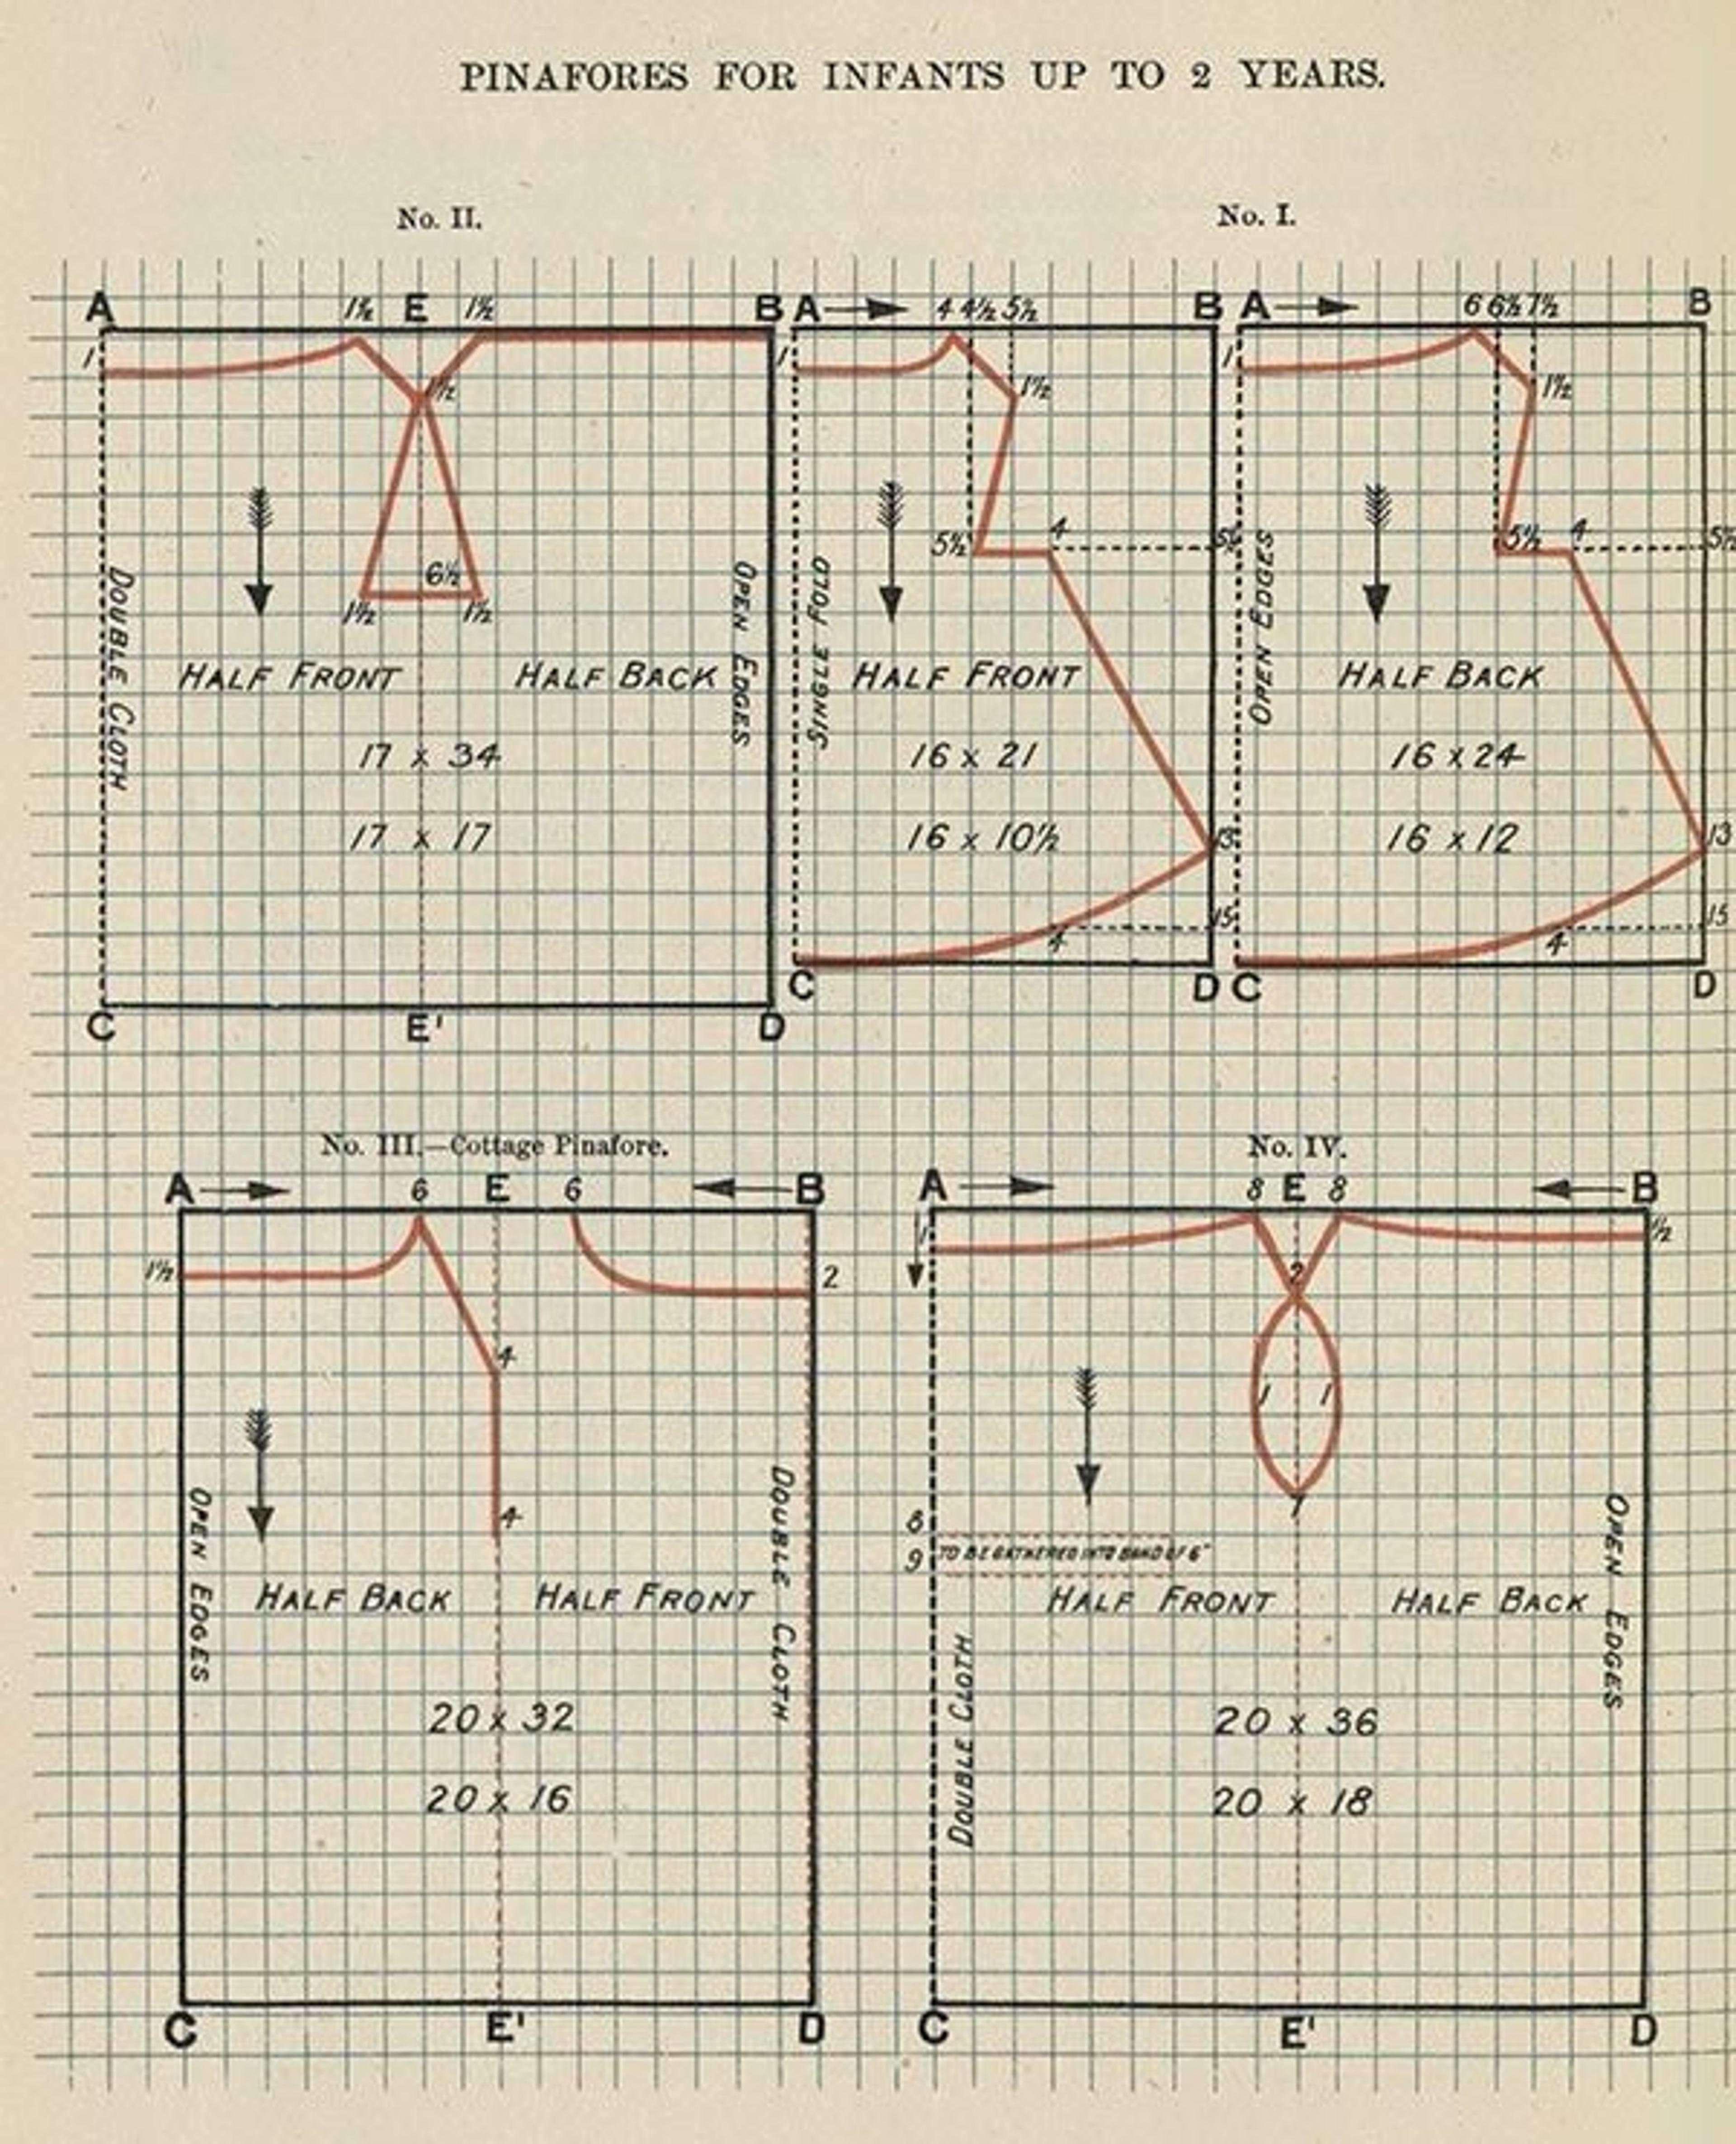 PINAFORES FOR INFANTS UP TO 2 YEARS.
No. II.
A 1½ E 1½ B
1
1½
6½
1½ 1½
DOUBLE CLOTH
OPEN EDGES
HALF FRONT HALF BACK
17 x 34
17 x 17
C E' D
No. I.
A 4 4½ 5½ B
1
1½
5½ 4 5½
SINGLE FOLD
HALF FRONT
16 x 21
16 x 10½
13
15
4
C D
A 6 6½ 7½ B
1
1½
5½ 4 5½
OPEN EDGES
HALF BACK
16 x 24
16 x 12
13
15
4
C D
No. III.—Cottage Pinafore.
A 6 E 6 B
1½ 2
4
4
OPEN EDGES
DOUBLE CLOTH
HALF BACK HALF FRONT
20 x 32
20 x 16
C E' D
No. IV.
A 8 E 8 B
1 ½
2
1 1
7
8
9 TO BE GATHERED INTO BAND OF 6"
HALF FRONT HALF BACK
DOUBLE CLOTH
OPEN EDGES
20 x 36
20 x 18
C E' D